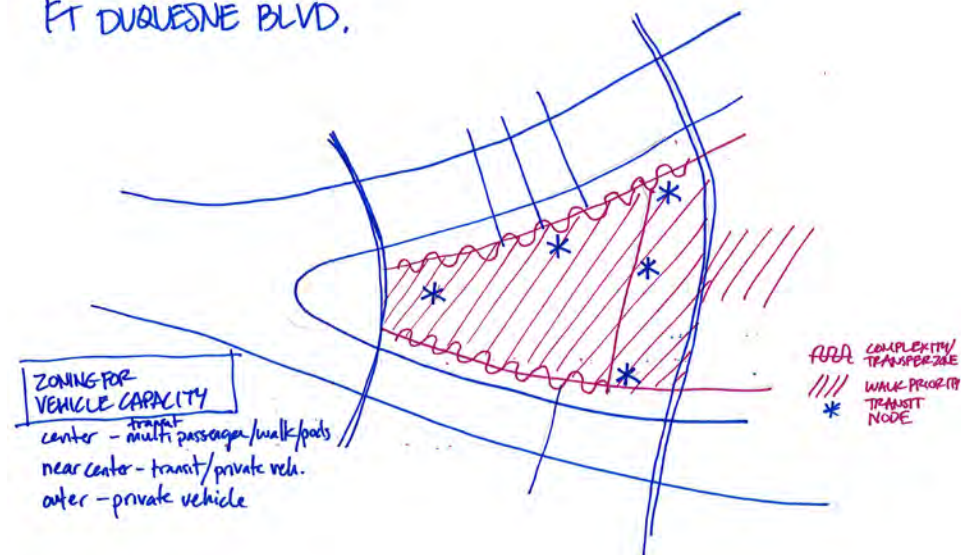 FT DUQUESNE BLVD.
ZONING FOR
VEHICLE CAPACITY
transit
center - multi passenger/walk/pods
near center - transit/private veh.
outer - private vehicle
COMPLEXITY/
TRANSFER ZONE
WALK PRIORITY
TRANSIT
NODE